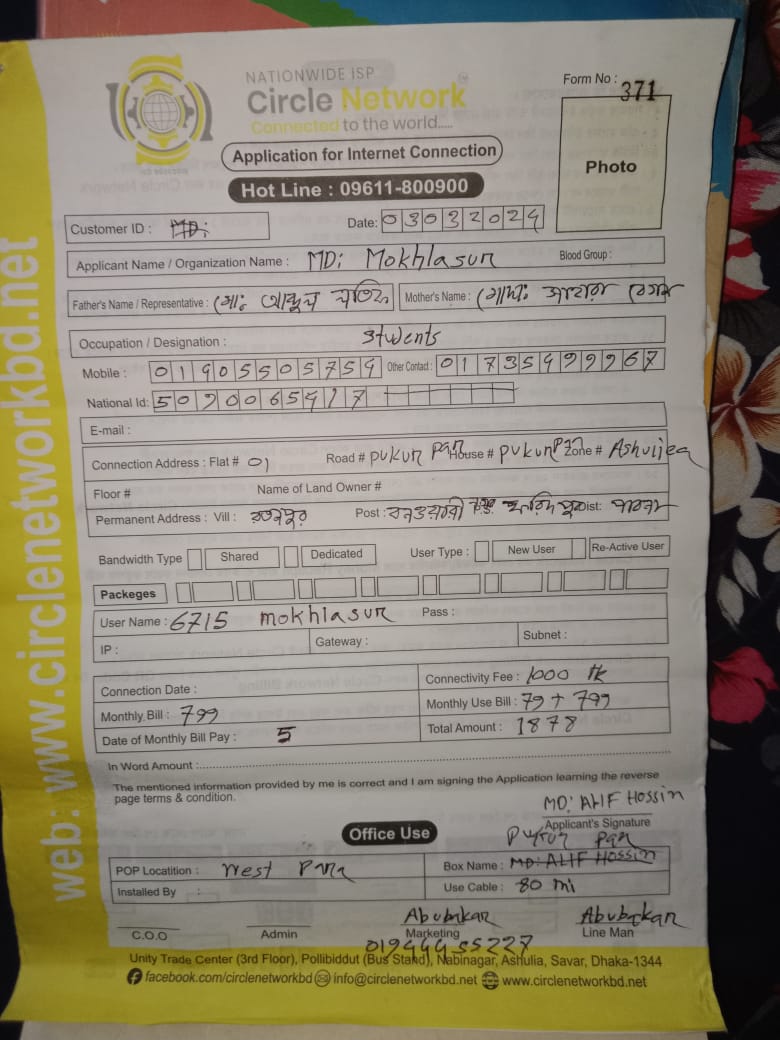 NATIONWIDE ISP
Circle Network
Connected to the world.....
Form No : 371
Application for Internet Connection
Photo
Hot Line : 09611-800900
Customer ID : MD:
Date: 03032024
Applicant Name / Organization Name : MD: Mokhlasur Blood Group :
Father's Name / Representative : মো: Mother's Name : মোছা: বেগম
Occupation / Designation : students
Mobile : 01905505754 Other Contact : 01735499967
National Id: 5090065417
E-mail :
Connection Address : Flat # 01 Road # pukur par House # pukur Zone # Ashuliea
Floor # Name of Land Owner #
Permanent Address : Vill : রতনপুর Post : বনওয়ারী ফরিদপুর Dist: পাবনা
Bandwidth Type Shared Dedicated User Type : New User Re-Active User
Packeges
User Name : 6715 mokhlasur Pass :
IP : Gateway : Subnet :
Connection Date : Connectivity Fee : 1000 tk
Monthly Bill : 799 Monthly Use Bill : 79 + 799
Date of Monthly Bill Pay : 5 Total Amount : 1878
In Word Amount :
The mentioned information provided by me is correct and I am signing the Application learning the reverse
page terms & condition.
MD: ALIF Hossin
Applicant's Signature
Office Use
Pukur Par
POP Locatition : West Para Box Name : MD: ALIF Hossin
Installed By : Use Cable : 80 mi
Abubakar Abubakar
C.O.O Admin Marketing Line Man
01944455227
Unity Trade Center (3rd Floor), Pollibiddut (Bus Stand), Nabinagar, Ashulia, Savar, Dhaka-1344
facebook.com/circlenetworkbd info@circlenetworkbd.net www.circlenetworkbd.net
web : www.circlenetworkbd.net